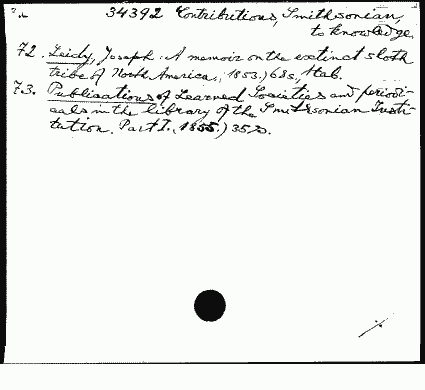 34392 Contributions, Smithsonian,
to knowledge.
72. Leidy, Joseph. A memoir on the extinct sloth
tribe of North America, 1853.) 68s, tab.
73. Publications of Learned Societies and periodi-
cals in the library of the Smithsonian Insti-
tution. Part I. (1855.) 35